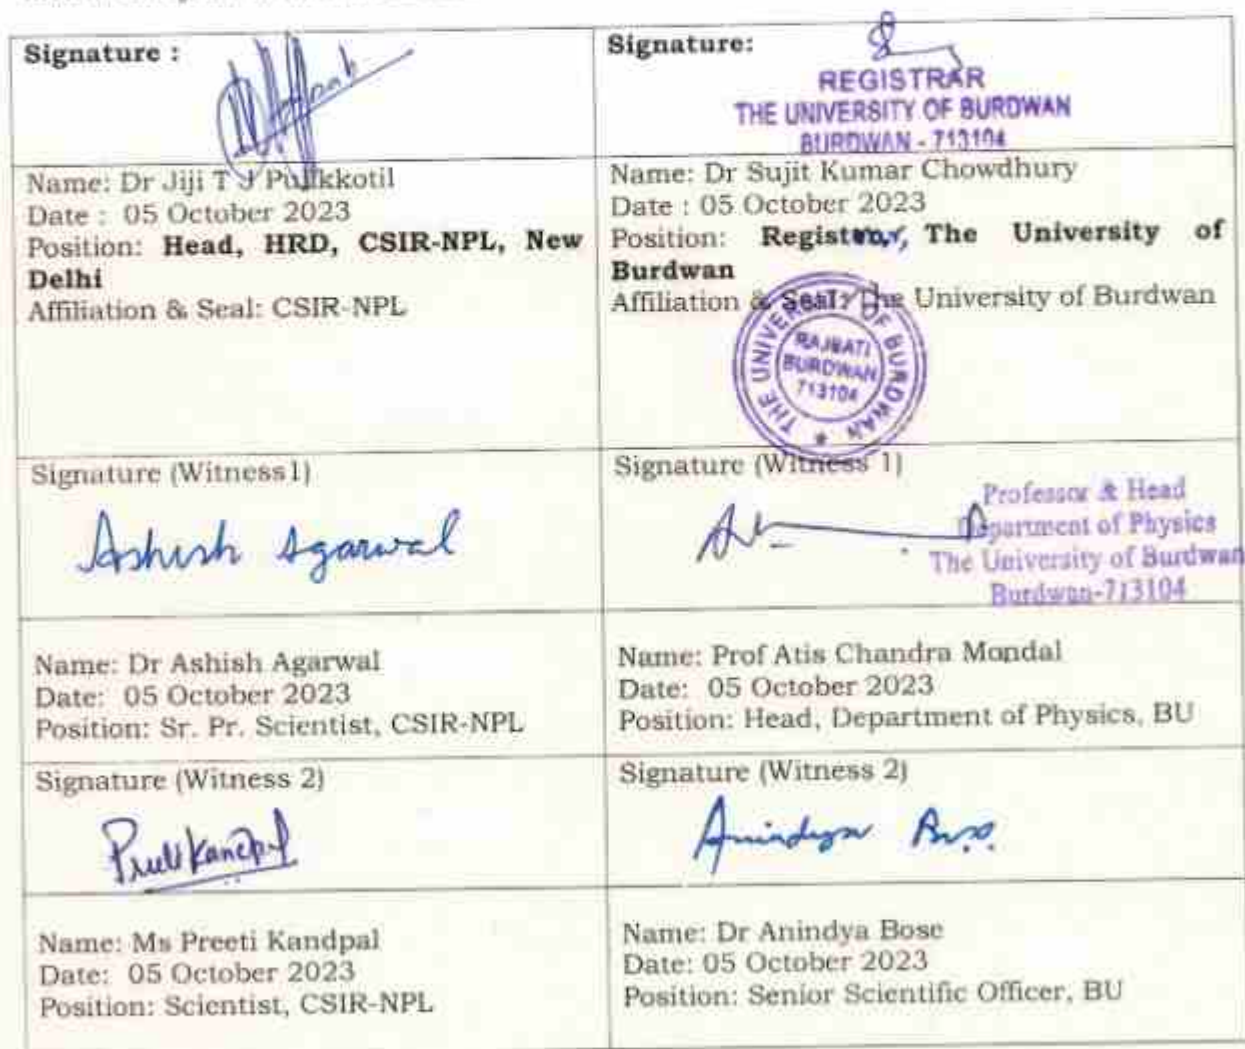 Signature :
Signature:
REGISTRAR
THE UNIVERSITY OF BURDWAN
BURDWAN - 713104
Name: Dr Jiji T J Pullikkotil
Date : 05 October 2023
Position: Head, HRD, CSIR-NPL, New
Delhi
Affiliation & Seal: CSIR-NPL
Name: Dr Sujit Kumar Chowdhury
Date : 05 October 2023
Position: Registrar, The University of
Burdwan
Affiliation & Seal: The University of Burdwan
THE UNIVERSITY OF BURDWAN
RAJBATI
BURDWAN
713104
Signature (Witness1)
Ashish Agarwal
Signature (Witness 1)
Professor & Head
Department of Physics
The University of Burdwan
Burdwan-713104
Name: Dr Ashish Agarwal
Date: 05 October 2023
Position: Sr. Pr. Scientist, CSIR-NPL
Name: Prof Atis Chandra Mondal
Date: 05 October 2023
Position: Head, Department of Physics, BU
Signature (Witness 2)
Kandpal
Signature (Witness 2)
Anindya Bose
Name: Ms Preeti Kandpal
Date: 05 October 2023
Position: Scientist, CSIR-NPL
Name: Dr Anindya Bose
Date: 05 October 2023
Position: Senior Scientific Officer, BU